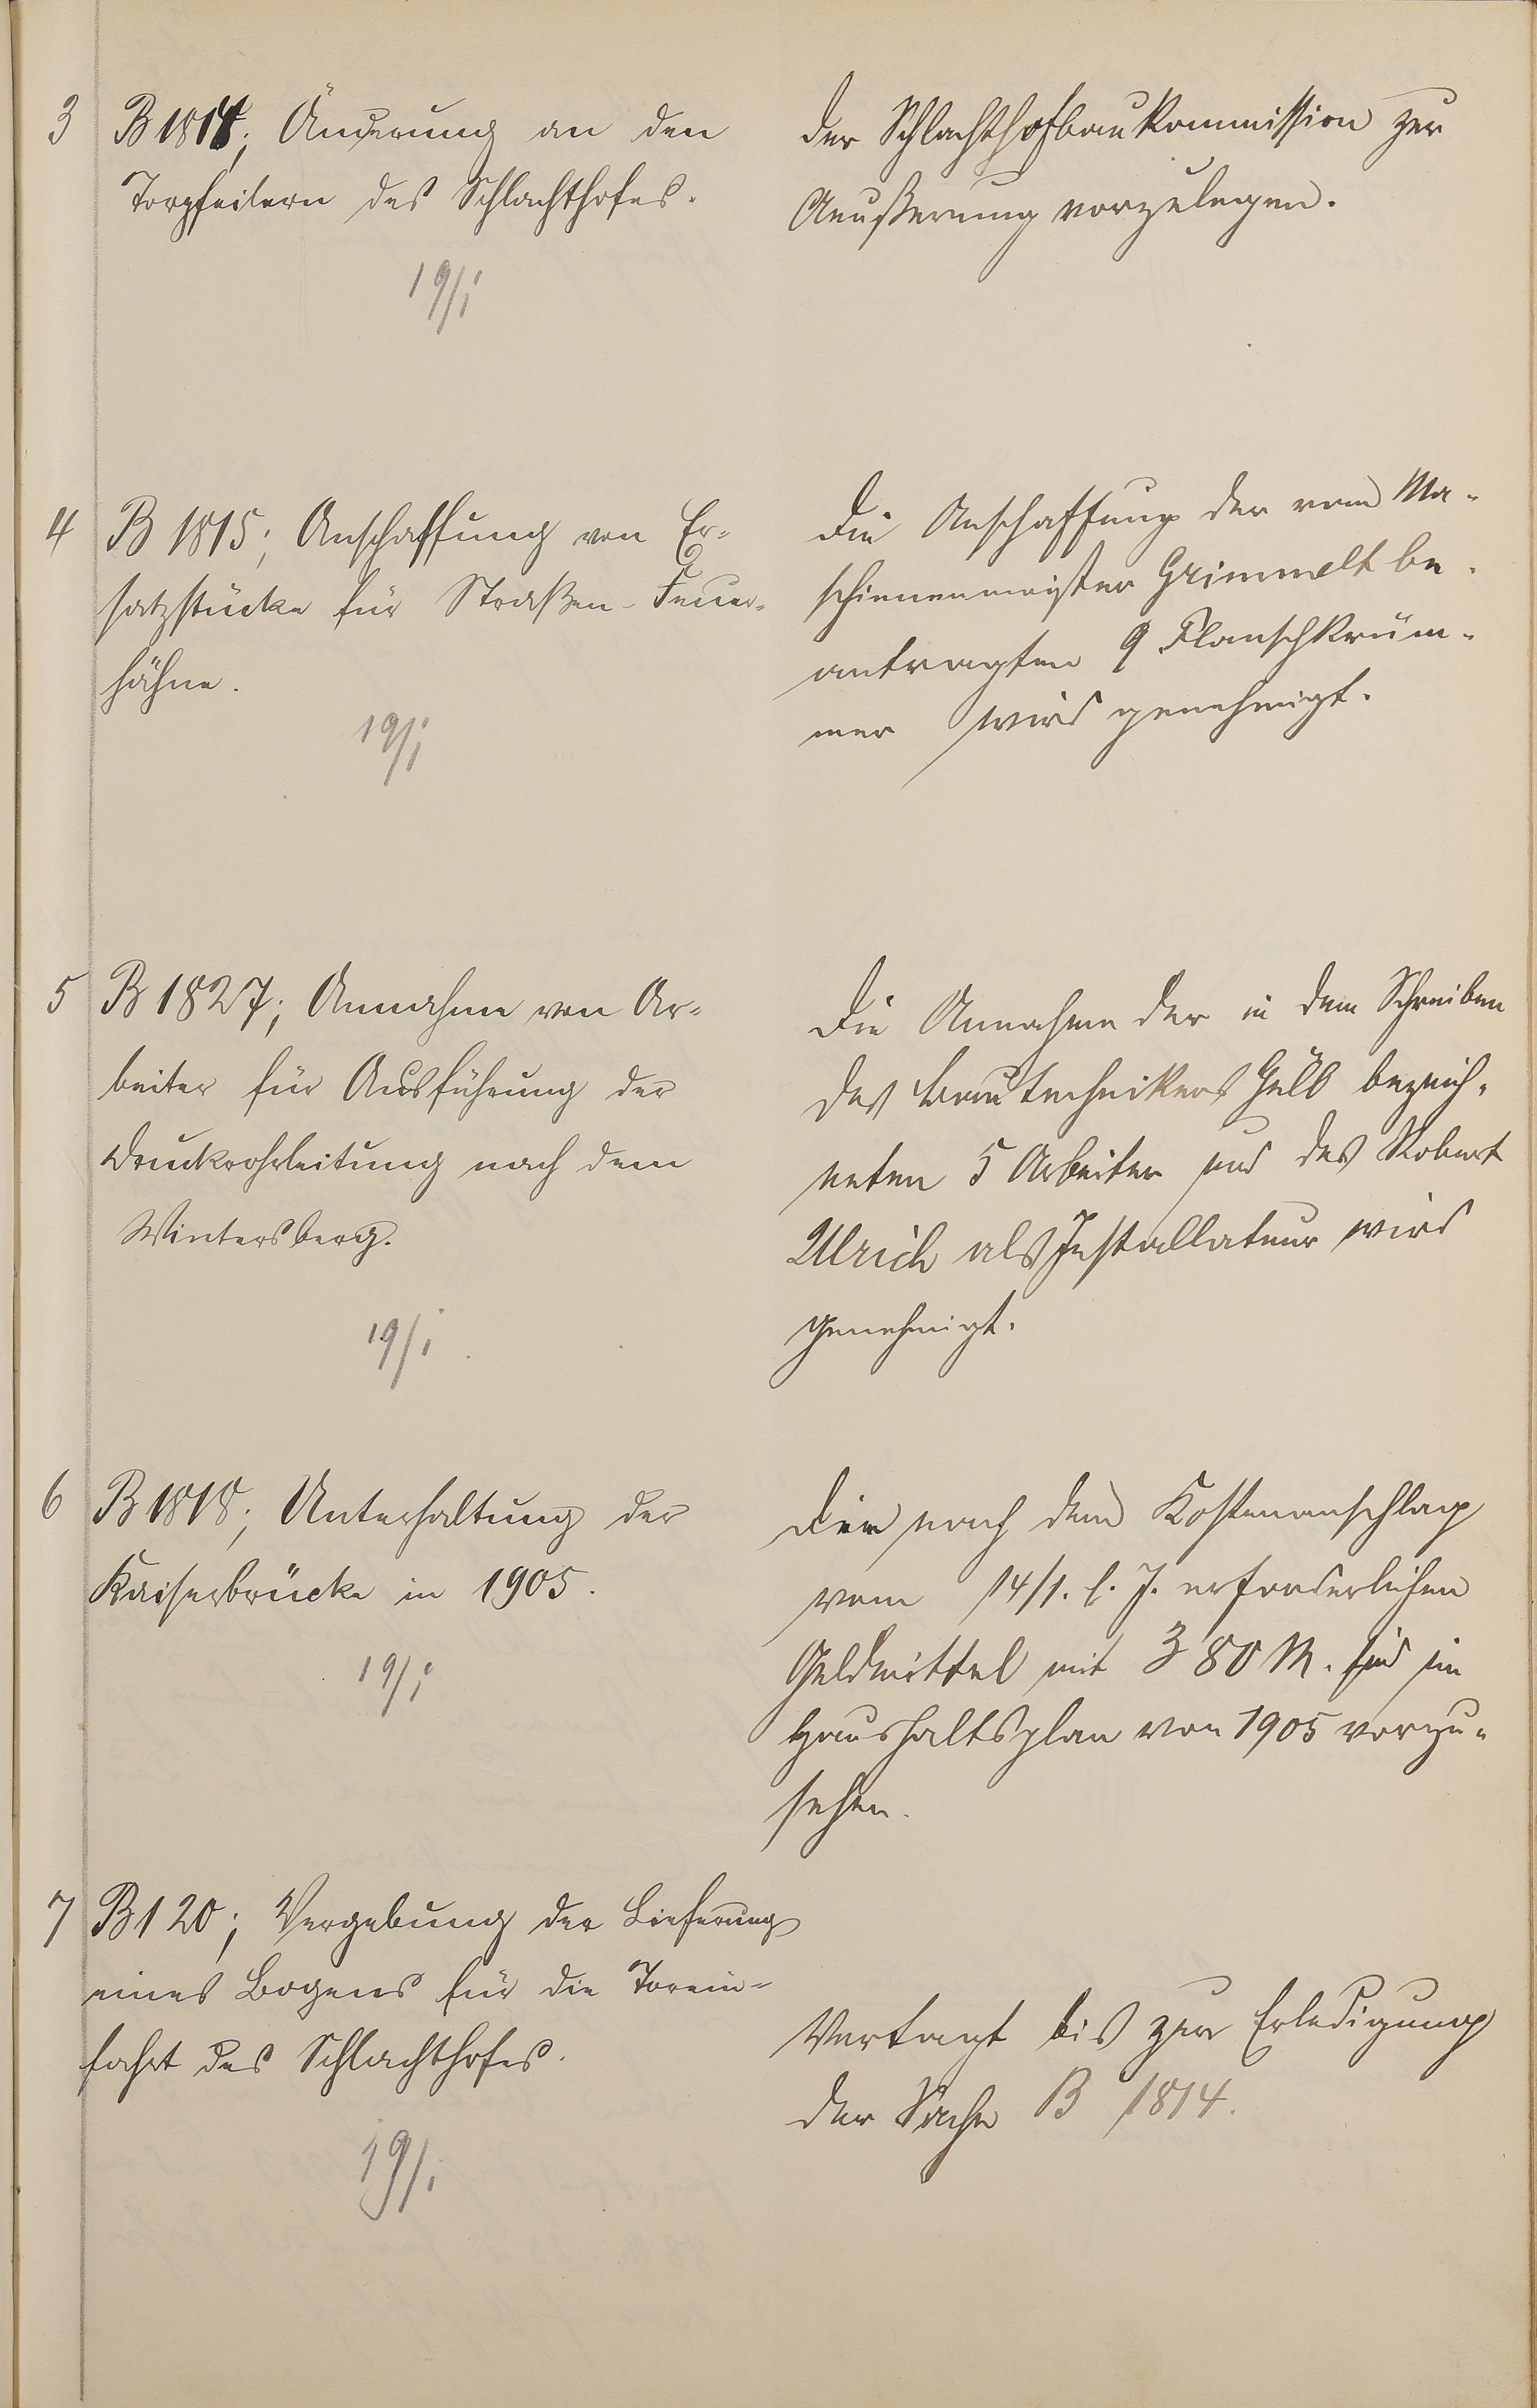 3 B 1814; Änderung an den
Torpfeilern des Schlachthofes.
19/I
Der Schlachthofbaukommission zur
Aeußerung vorzulegen.
4 B 1815; Anschaffung von Er-
satzstücke für Straßen-Feuer-
hähne.
19/I
Die Anschaffung der vom Ma-
schienenmeister Grimmelt be-
antragten 9 Flanschkrüm-
mer wird genehmigt.
5 B 1827; Annahme von Ar-
beiter für Ausführung der
Druckrohrleitung nach dem
Wintersberg.
19/I
Die Annahme der in dem Schreiben
des Bautechnikers bezeich-
neten 5 Arbeiter und des Robert
Ulrich als Installateur wird
genehmigt.
6 B 1818; Unterhaltung der
Kaiserbrücke in 1905.
19/I
Die nach dem Kostenanschlag
vom 14/1. l. J. erforderlichen
Geldmittel mit 380 M. sind im
Haushaltsplan von 1905 vorzu-
sehen.
7 B 120; Vergebung der Lieferung
eines Bogens für die Torein-
fahrt des Schlachthofes.
19/I
Vertagt bis zur Erledigung
der Sache B 1814.